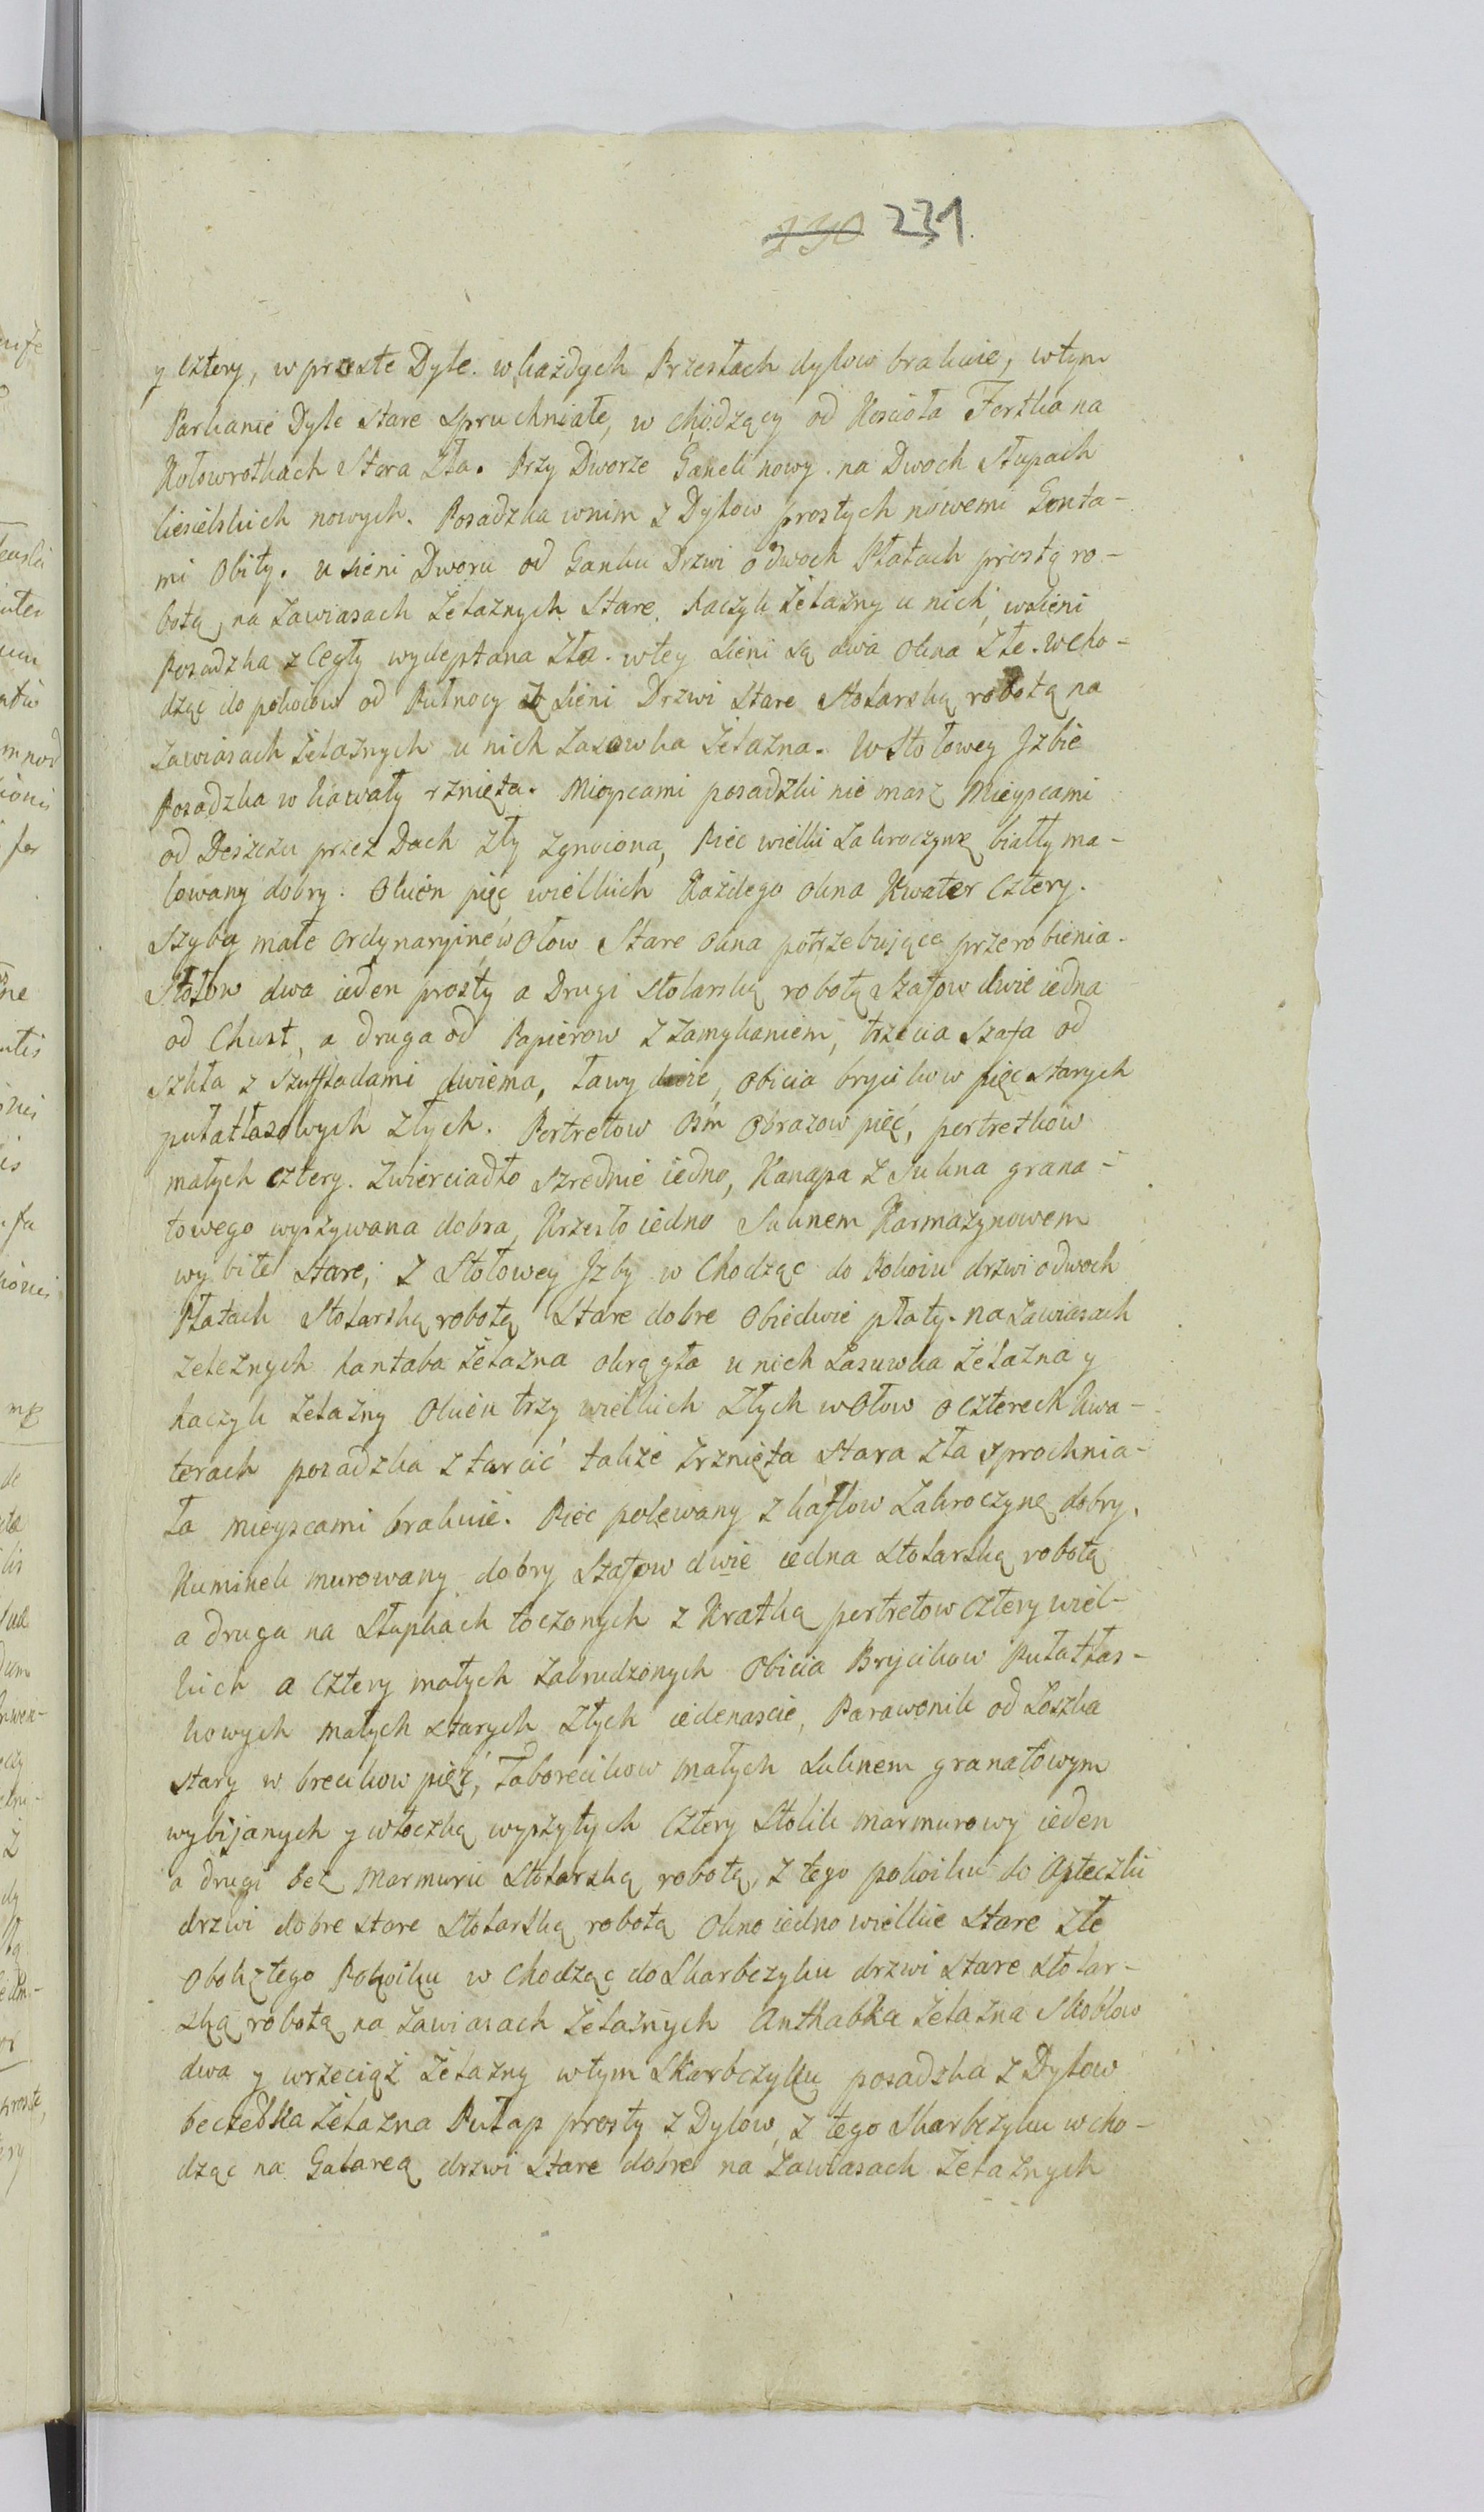 230 231.
y cztery, w proste Dyle. w każdych Przesłach dylow brakuie, wtym
Parkanie Dyle stare spruchniałe, w chodzący od Kościoła Fortka na
Kołowrotkach stara zła. Przy Dworze Ganek nowy. na Dwoch słupach
ciesielskich nowych. Posadzka wnim z Dylow prostych nowemi Gonta-
mi Obity. u sieni Dworu od Ganku Drzwi o dwoch Płatach prostą ro-
botą, na zawiasach żelaznych stare, haczyk żelazny u nich, wsieni
Posadzka z Cegły wydeptana zła. wtey sieni są dwa okna złe. wcho-
dząc do pokoiow od Pułnocy z sieni Drzwi stare stolarską robotą na
zawiasach żelaznych u nich zasowka żelazna. W Stołowey Jzbie
Posadzka w kawały rznięta. Mieyscami posadzki nie masz Mieyscami
od Deszczu przez Dach zły zgnoiona, Piec wielki Zakroczynę biały ma-
lowany dobry. Okien pięc wielkich Każdego okna Kwater cztery.
szyby małe ordynaryine w Ołow stare okna potrzebuiące przerobienia.
Stołow dwa ieden prosty a Drugi stolarską robotą szafow dwie iedna
od Chust, a druga od Papierow z zamykaniem, trzecia szafa od
szkła z szuffladami dwiema, ławy dwie, obicia brycikow pięc starych
pułatłasowych złych. Portretow Osm Obrazow pięć, portretkow
małych cztery. Zwierciadło szrednie iedno, Kanapa z Sukna grana-
towego wyszywana dobra, Krzesło iedno Suknem Karmazynowem
wybite stare, z Stołowey Jzby w Chodząc do Pokoiu drzwi odwoch
Płatach stolarską robotą stare dobre obiedwie płaty. na zawiasach
zeleznych kantaba żelazna okrągła u nich zasuwka żelazna y
haczyk żelazny Okien trzy wielkich złych wołow o czterech kwa-
terach posadzka z tarcić także zrznięta stara zła sprochnia-
ła mieyscami brakuie. Piec polewany z kaflow Zakroczynę dobry,
Kuminek murowany dobry szafow dwie iedna stolarską robotą
a druga na słupkach toczonych z Kratką portretow cztery wiel-
kich a cztery małych zabrudzonych obicia Brycikow Pułatłas-
kowych małych starych złych iedenascie, Parawonik od Łoszka
stary w brecikow pięć, Taborecikow małych suknem granatowym
wybijanych y włoczką wyszytych cztery stolik marmurowy ieden
a drugi bez marmuru stolarską robotą, z tego pokoiku do Apteczki
drzwi dobre stare stolarską robotą okno iedno wielkie stare złe
obok z tego Pokoiku w chodząc do Skarbczyku drzwi stare stolar-
ską robotą na zawiasach żelaznych Anthabka żelazna Skoblow
dwa y wrzeciąż żelazny wtym Skarbczyku posadzka z Dylow
beczebka żelazna Pułap prosty z Dylow, z tego Skarbczyku wcho-
dząc na Galareą drzwi stare dobre na zawiasach żelaznych